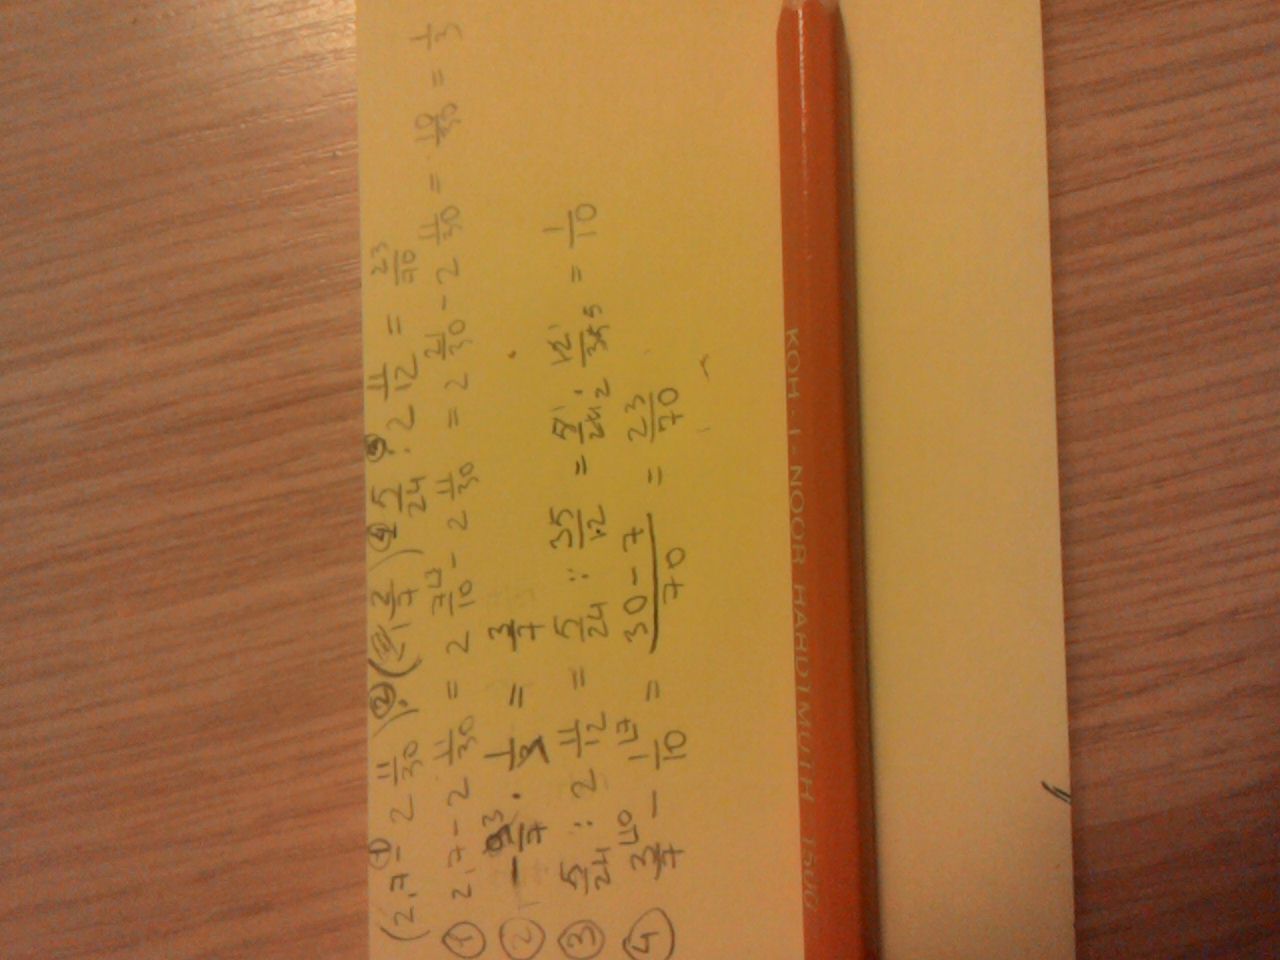 (2,7 - 2 11/30) · (1 2/7) - 5/24 : 2 11/12 = 23/70
① 2,7 - 2 11/30 = 2 7/10 - 2 11/30 = 2 21/30 - 2 11/30 = 10/30 = 1/3
② 9/7 · 1/3 = 3/7
③ 5/24 : 2 11/12 = 5/24 : 35/12 = 5/24 · 12/35 = 1/10
④ 3/7 - 1/10 = 30-7/70 = 23/70
KOH-I-NOOR HARDTMUTH 1500